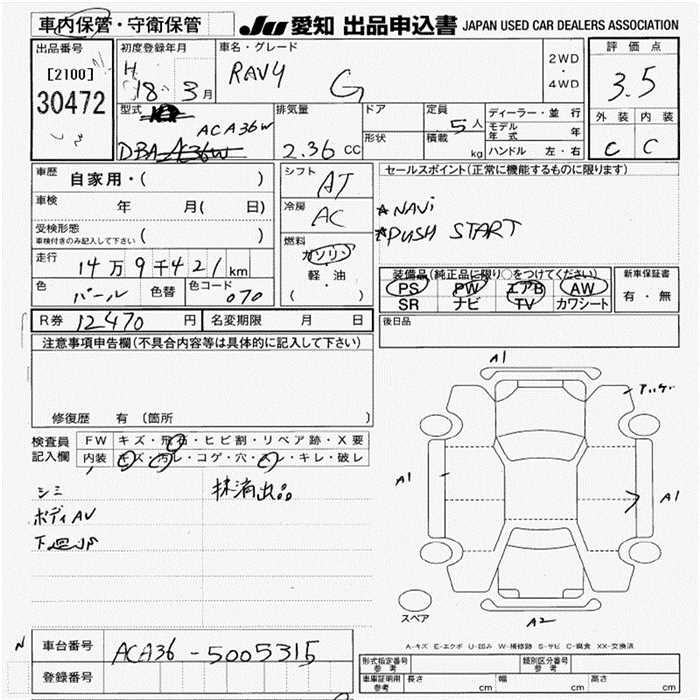 車内保管・守衛保管
JU 愛知 出品申込書 JAPAN USED CAR DEALERS ASSOCIATION
出品番号 初度登録年月 車名・グレード 2WD・4WD 評価点
[2100] H 18年 3月 RAV4 G 3.5
30472
型式 ACA36W DBA-ACA36W 排気量 2.36 CC ドア 形状 定員 5人 積載 kg ディーラー・並行 外装 内装
モデル年式 年 C C
ハンドル 左・右
車歴 自家用・( ) シフト AT セールスポイント(正常に機能するものに限ります)
車検 年 月( 日) 冷房 AC ☆NAVi
受検形態 ( ) ☆PUSH START
車検付きのみ記入して下さい
燃料 ガソリン 軽油 ( ・ )
走行 14万9千421km 装備品(純正品に限り○をつけてください) 新車保証書
色 パール 色替 色コード 070 PS PW エアB AW 有・無
SR ナビ TV カワシート
R券 12470円 名変期限 月 日 後日品
注意事項申告欄(不具合内容等は具体的に記入して下さい)
修復歴 有 (箇所
検査員 FW キズ・飛石・ヒビ割・リペア跡・X要
記入欄 内装 キズ・汚レ・コゲ・穴・スレ・キレ・破レ
シミ 抹消出品
ボディAU
下廻りP
A1
A1
A1
A2
スペア
A-キズ E-エクボ U-凹み W-補修跡 S-サビ C-腐食 XX-交換済
N 車台番号 ACA36-5005315
登録番号
形式指定番号 参考 類別区分番号 参考
車庫証明用 参考 長さ cm 幅 cm 高さ cm